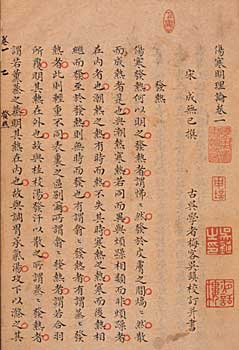 傷寒明理論卷一
宋 成無已撰
古吳學者梅客吳鎮校訂并書
發熱
傷寒發熱何以明之發熱者謂怫怫然發於皮膚之間熇熇然散
而成熱者是也與潮熱寒熱若同而異與煩躁相類而非煩躁者
在內者也潮熱之熱有時而熱不失其時寒熱之熱寒已而熱相
繼而發至於發熱則無時而發也有謂翕翕發熱者有謂蒸蒸發
熱者此則輕重不同表裏之區別爾所謂翕翕發熱者謂若合羽
所覆明其熱在外也故與桂枝湯發汗以散之所謂蒸蒸發熱者
謂若薰蒸之蒸明其熱在內也故與調胃承氣湯攻下以滌之其
卷一 七 發熱